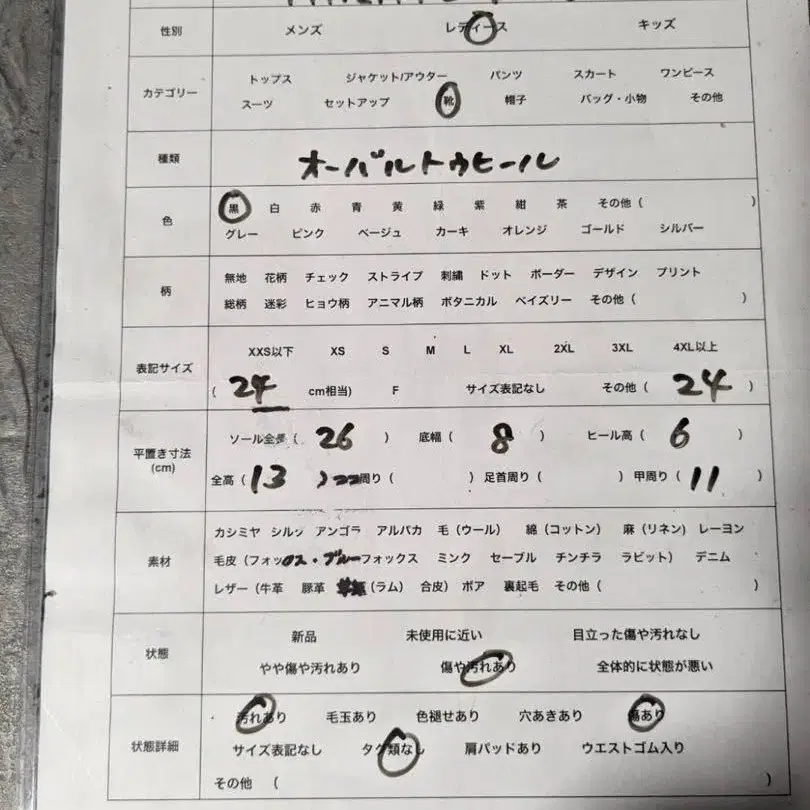 性別 メンズ レディース キッズ
カテゴリー トップス ジャケット/アウター パンツ スカート ワンピース
スーツ セットアップ 靴 帽子 バッグ・小物 その他
種類 オーバルトゥヒール
色 黒 白 赤 青 黄 緑 紫 紺 茶 その他 ( )
グレー ピンク ベージュ カーキ オレンジ ゴールド シルバー
柄 無地 花柄 チェック ストライプ 刺繍 ドット ボーダー デザイン プリント
総柄 迷彩 ヒョウ柄 アニマル柄 ボタニカル ペイズリー その他 ( )
表記サイズ XXS以下 XS S M L XL 2XL 3XL 4XL以上
( 24 cm相当) F サイズ表記なし その他 ( 24 )
平置き寸法 (cm) ソール全長 ( 26 ) 底幅 ( 8 ) ヒール高 ( 6 )
全高 ( 13 ) 周り ( ) 足首周り ( ) 甲周り ( 11 )
素材 カシミヤ シルク アンゴラ アルパカ 毛 (ウール) 綿 (コットン) 麻 (リネン) レーヨン
毛皮 (フォックス・ブルーフォックス ミンク セーブル チンチラ ラビット) デニム
レザー (牛革 豚革 (ラム) 合皮) ボア 裏起毛 その他 ( )
状態 新品 未使用に近い 目立った傷や汚れなし
やや傷や汚れあり 傷や汚れあり 全体的に状態が悪い
状態詳細 汚れあり 毛玉あり 色褪せあり 穴あきあり 傷あり
サイズ表記なし タグ類なし 肩パッドあり ウエストゴム入り
その他 ( )